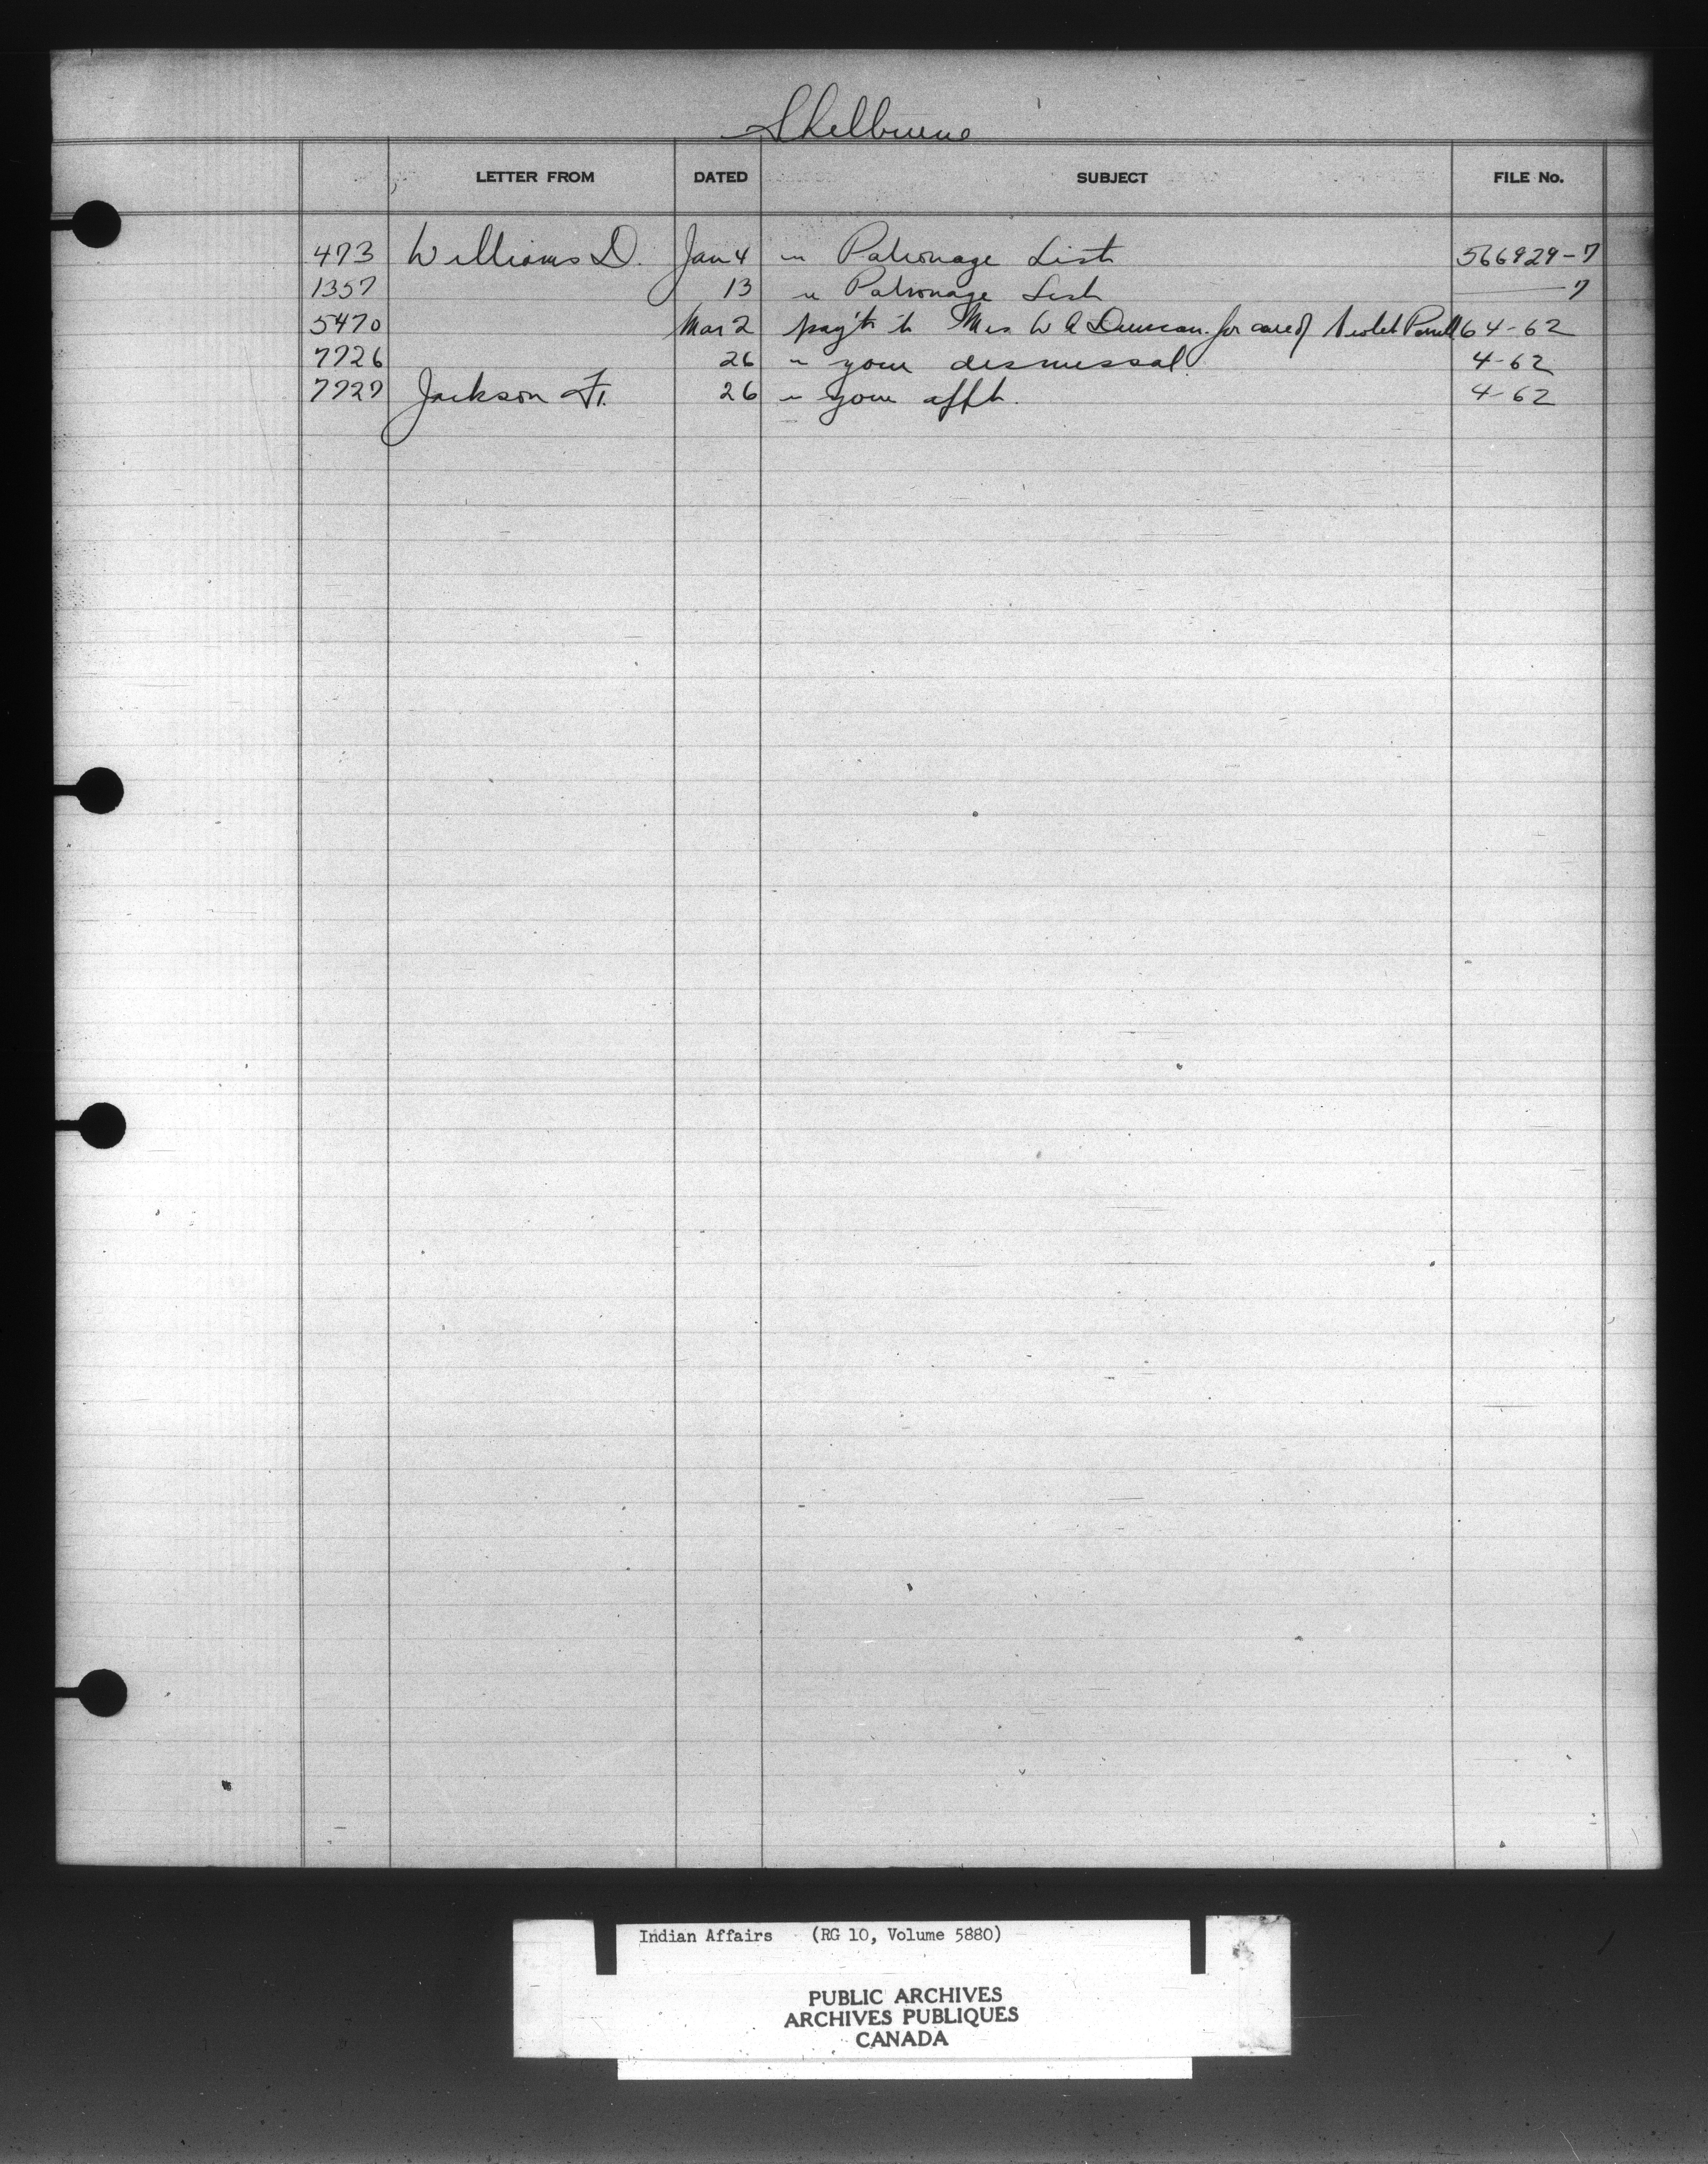 Shelburne
LETTER FROM DATED SUBJECT FILE No.
473 Williams D. Jan 4 " Patronage List 566929-7
1357 13 " Patronage List ——— 7
5470 Mar 2 pay't to Mrs W A Duncan for care of Violet 64-62
7726 26 " your dismissal 4-62
7727 Jackson F. 26 " your appt. 4-62
Indian Affairs (RG 10, Volume 5880)
PUBLIC ARCHIVES
ARCHIVES PUBLIQUES
CANADA